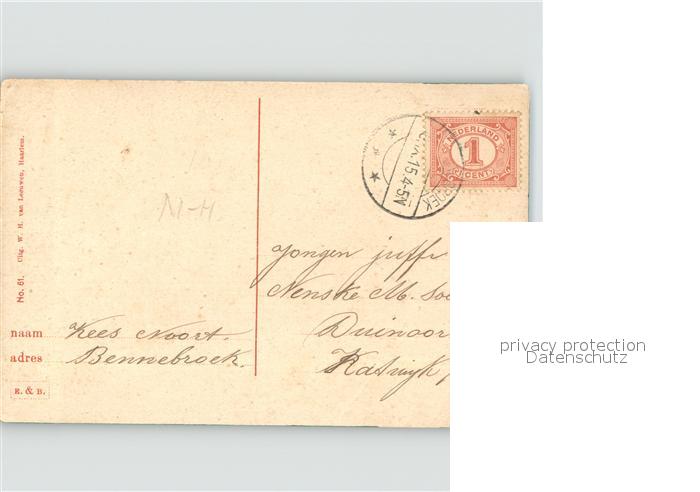 No. 61. Uitg. W. H. van Leeuwen, Haarlem.
NEDERLAND
1
CENT
15.4-5N
N-H.
Jongen juffr
Nenske M.
Duinoor
Katwijk
naam Kees Noort.
adres Bennebroek.
E. & B.
privacy protection
Datenschutz